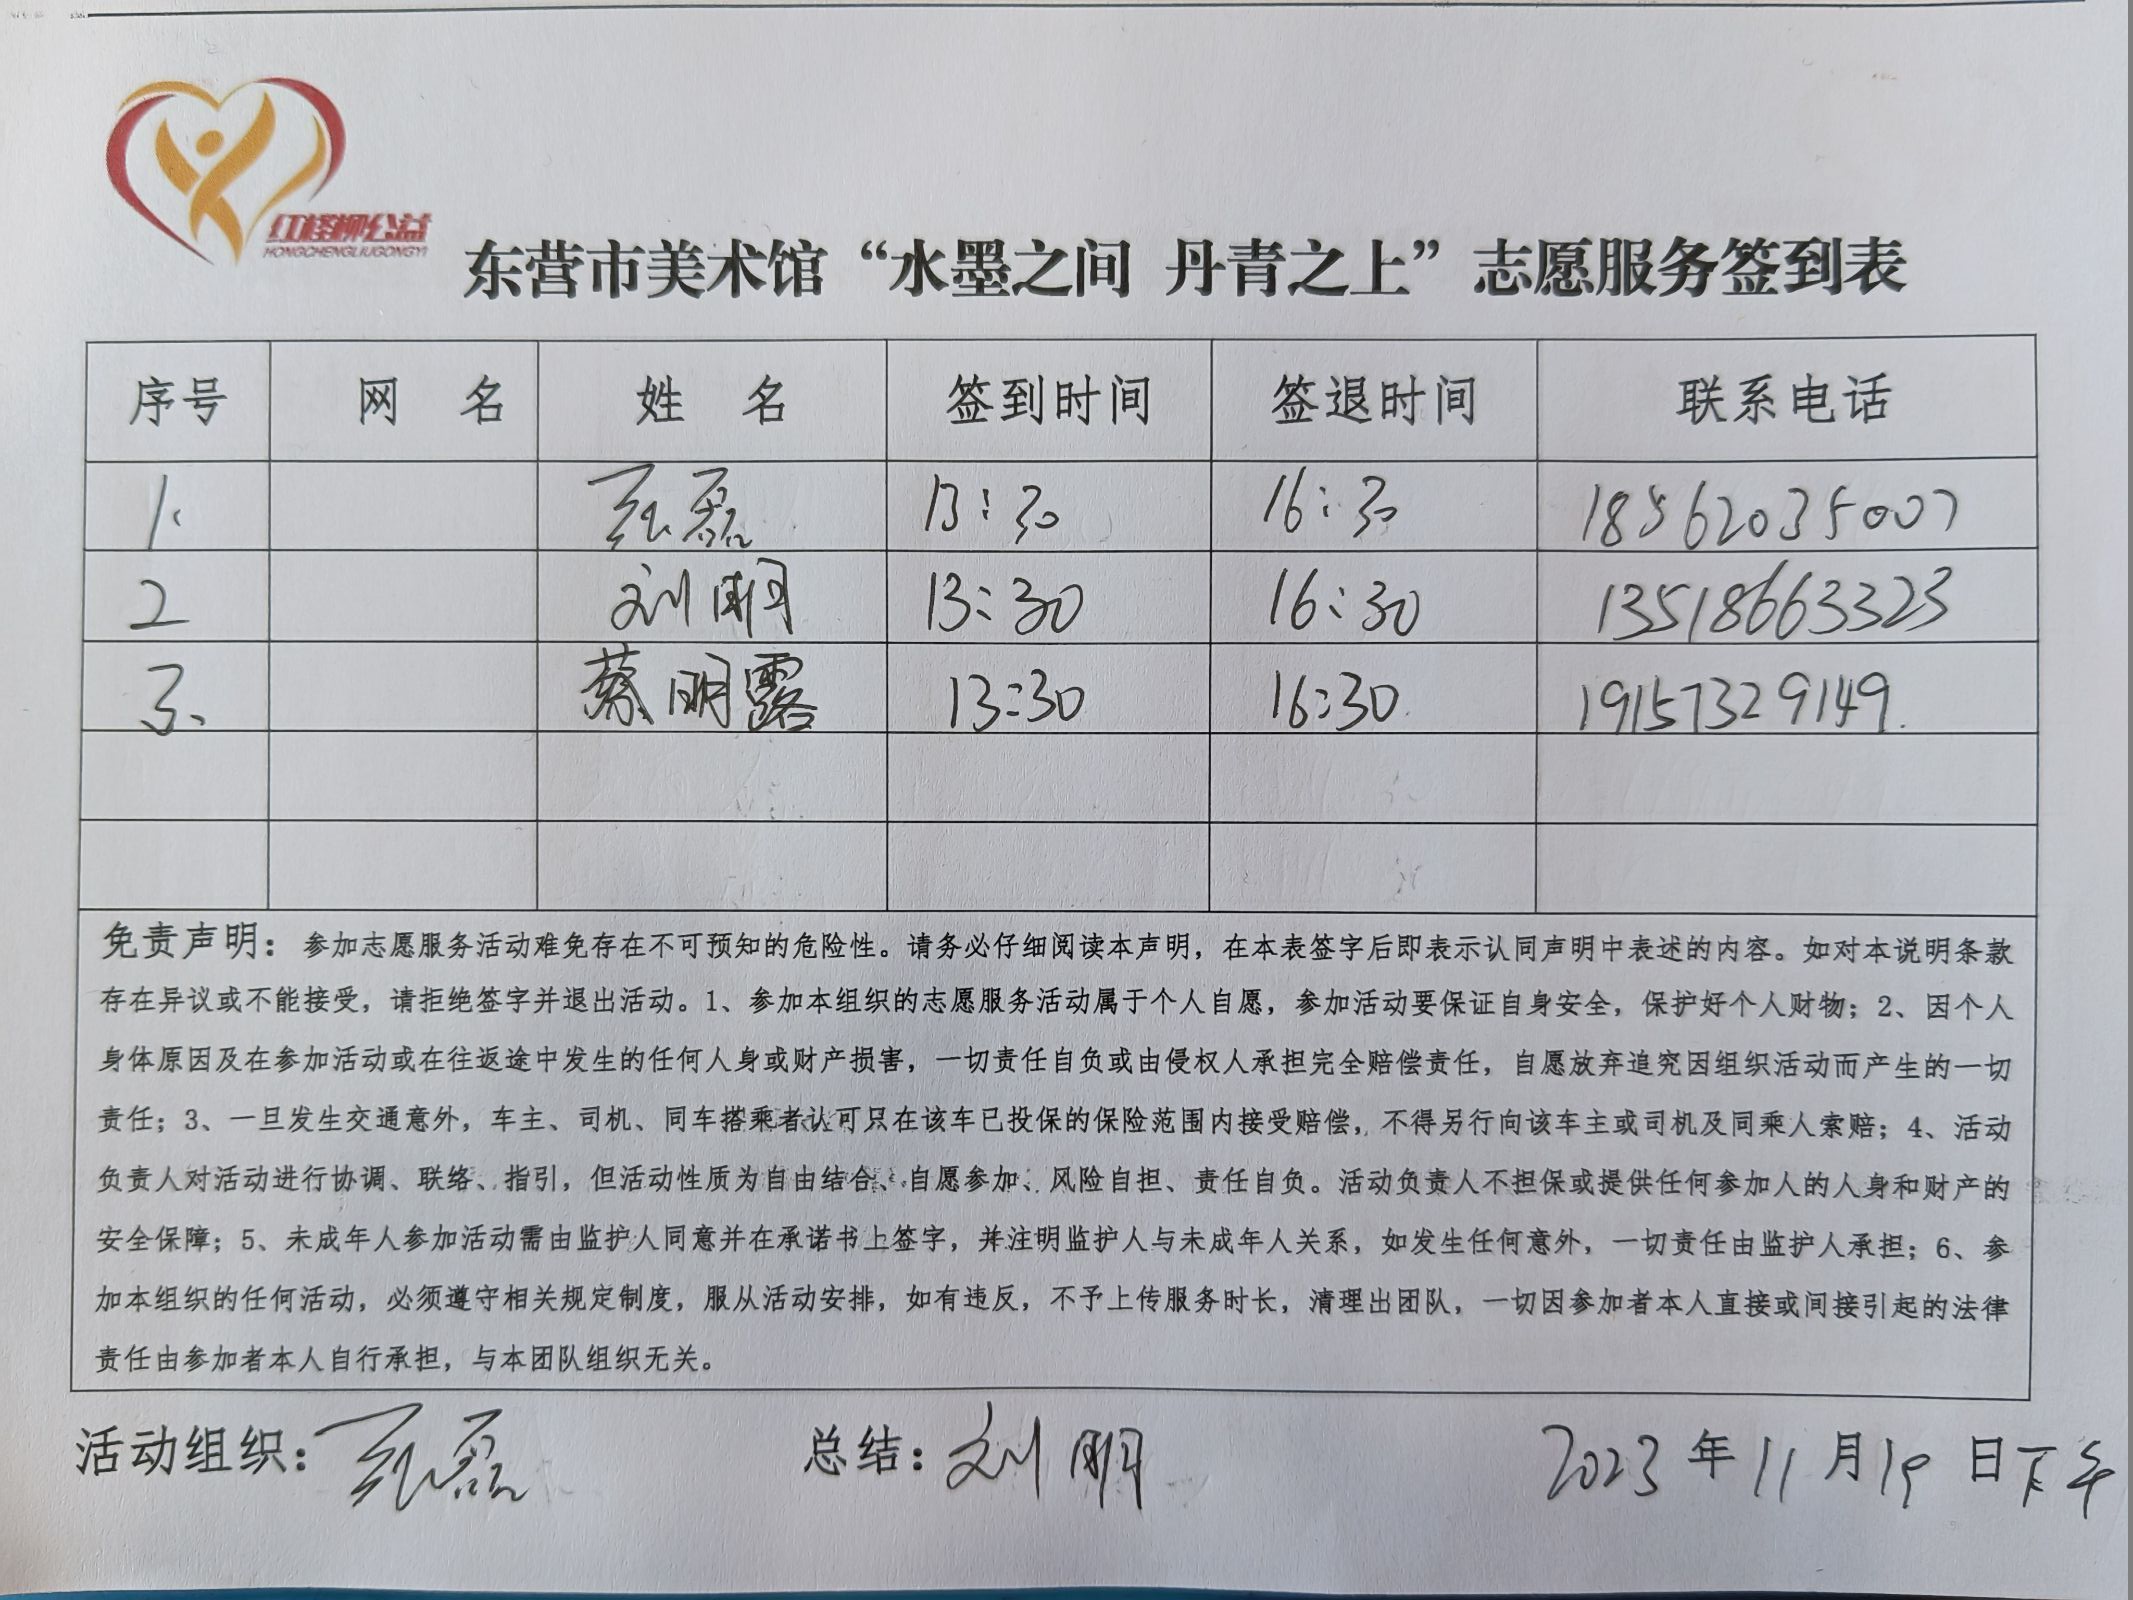 红柽柳公益
HONGCHENGLIUGONGYI
东营市美术馆“水墨之间 丹青之上”志愿服务签到表
序号 网 名 姓 名 签到时间 签退时间 联系电话
1. 磊 13:30 16:30 18562035007
2 刘明 13:30 16:30 13518663323
3. 蔡明露 13:30 16:30 19157329149.
免责声明：参加志愿服务活动难免存在不可预知的危险性。请务必仔细阅读本声明，在本表签字后即表示认同声明中表述的内容。如对本说明条款
存在异议或不能接受，请拒绝签字并退出活动。1、参加本组织的志愿服务活动属于个人自愿，参加活动要保证自身安全，保护好个人财物；2、因个人
身体原因及在参加活动或在往返途中发生的任何人身或财产损害，一切责任自负或由侵权人承担完全赔偿责任，自愿放弃追究因组织活动而产生的一切
责任；3、一旦发生交通意外，车主、司机、同车搭乘者认可只在该车已投保的保险范围内接受赔偿，不得另行向该车主或司机及同乘人索赔；4、活动
负责人对活动进行协调、联络、指引，但活动性质为自由结合、自愿参加、风险自担、责任自负。活动负责人不担保或提供任何参加人的人身和财产的
安全保障；5、未成年人参加活动需由监护人同意并在承诺书上签字，并注明监护人与未成年人关系，如发生任何意外，一切责任由监护人承担；6、参
加本组织的任何活动，必须遵守相关规定制度，服从活动安排，如有违反，不予上传服务时长，清理出团队，一切因参加者本人直接或间接引起的法律
责任由参加者本人自行承担，与本团队组织无关。
活动组织：磊 总结：刘明 2023年11月19日下午